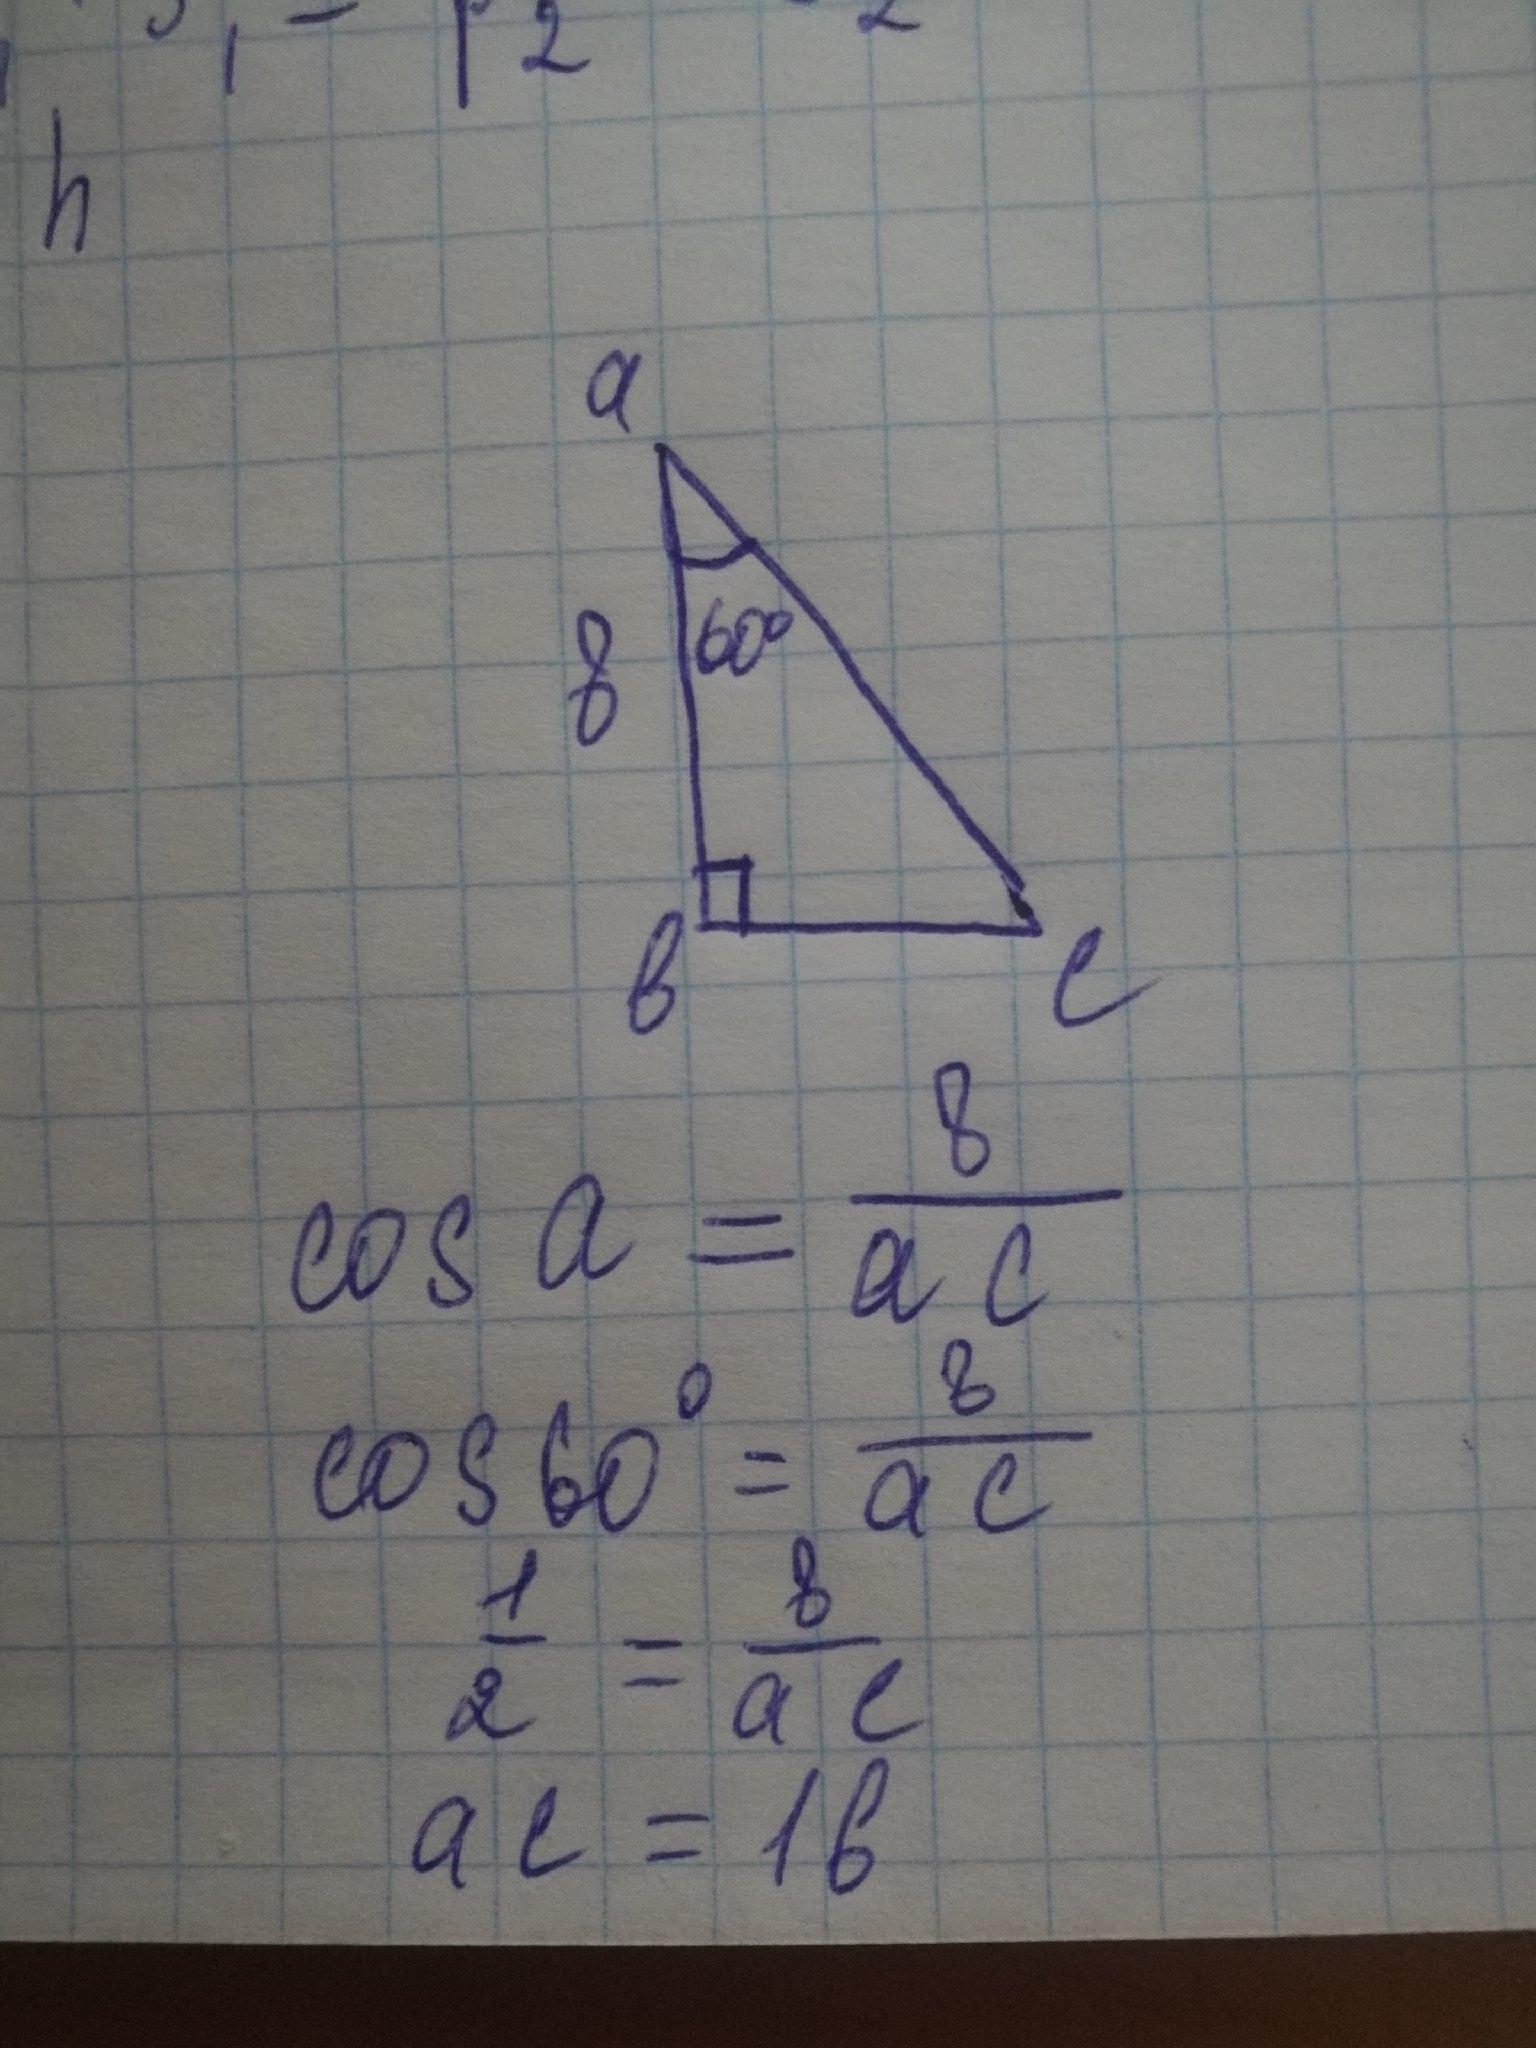 h
a
8
60°
в
c
cos a = 8/ac
cos 60° = 8/ac
1/2 = 8/ac
ac = 16